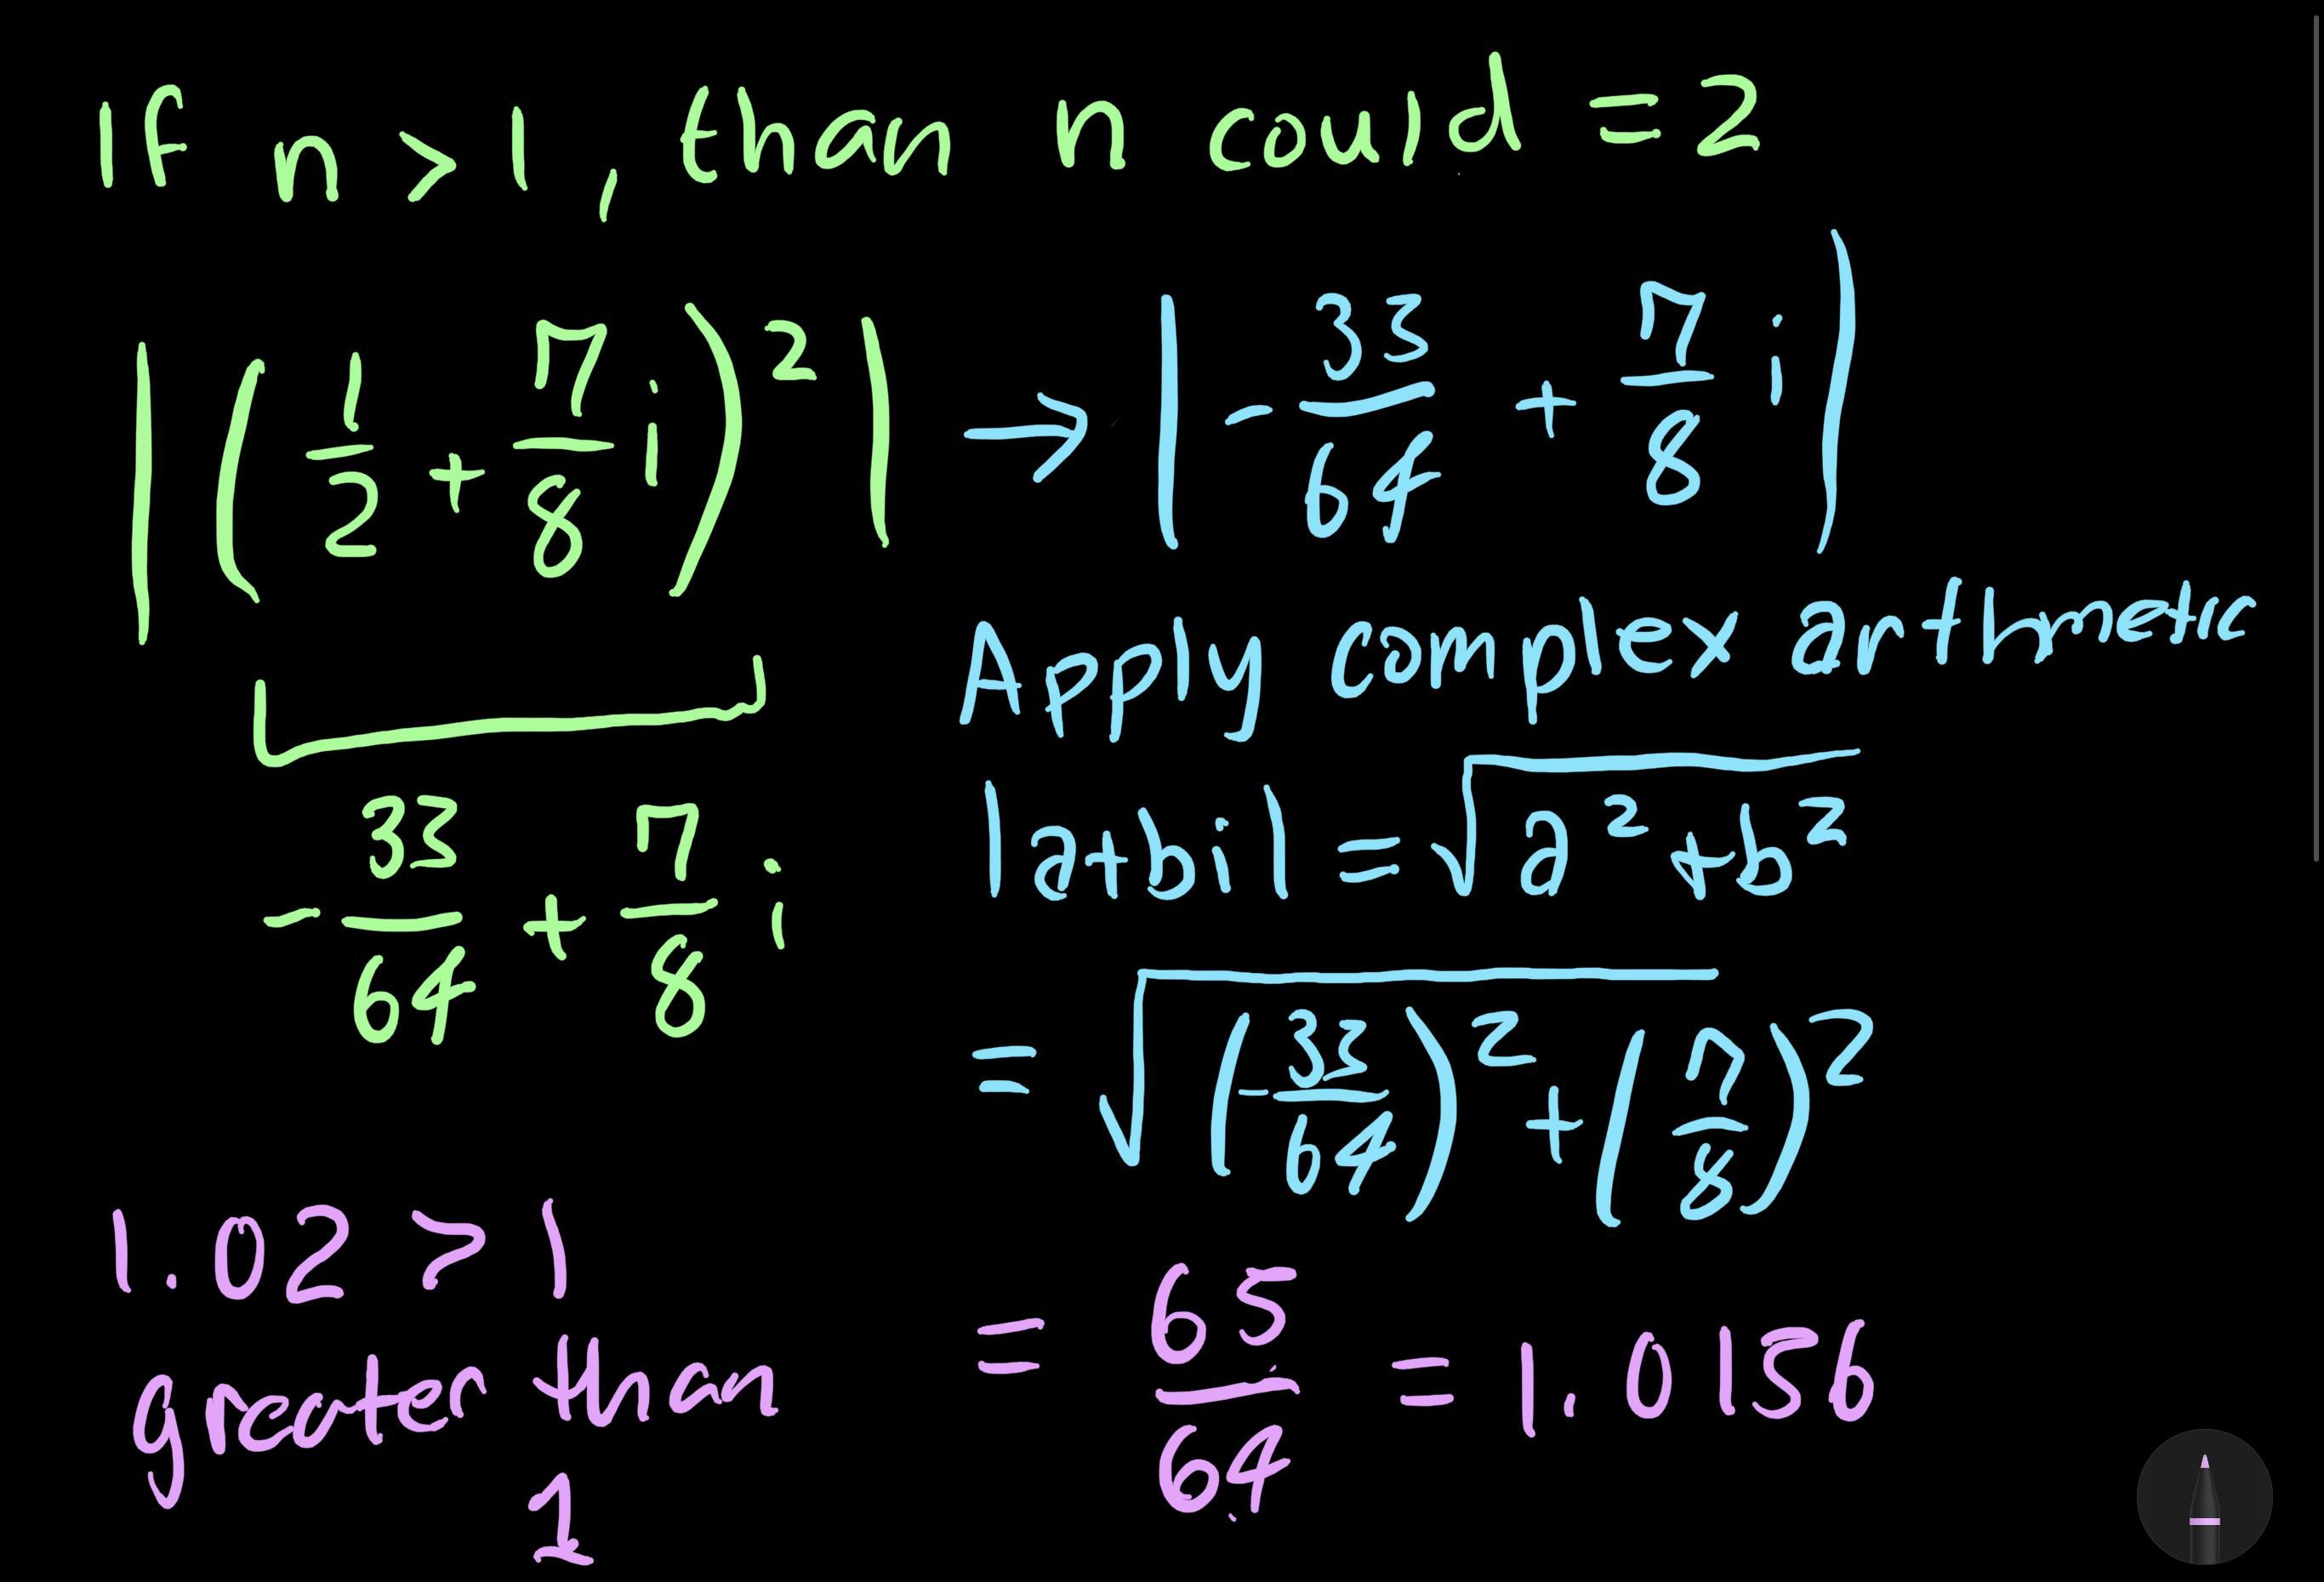 If n > 1, than n could = 2
|(1/2 + 7/8 i)^2| → |- 33/64 + 7/8 i|
- 33/64 + 7/8 i
Apply complex arthmetic
|a+bi| = √(a^2 + b^2)
= √((-33/64)^2 + (7/8)^2)
= 65/64 = 1.0156
1.02 > 1
greater than
1